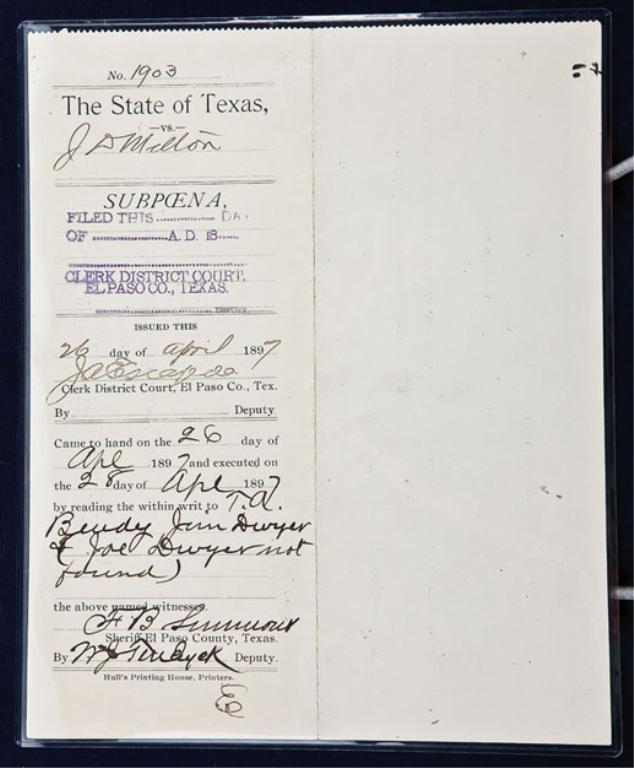 No. 1903
The State of Texas,
—vs.—
J D Milton
SUBPŒNA,
FILED THIS ............... DAY
OF ....................A. D. 18.....
CLERK DISTRICT COURT.
EL PASO CO., TEXAS.
DEPUTY
ISSUED THIS
26 day of april 1897
J A Escajeda
Clerk District Court, El Paso Co., Tex.
By Deputy.
Came to hand on the 26 day of
Apl 1897 and executed on
the 28 day of Apl 1897
by reading the within writ to T.A.
Bendy Jim Dwyer
& (Joe Dwyer not
found)
the above named witnesses.
F B Simmons
Sheriff El Paso County, Texas.
By W J Ten Eyck Deputy.
Hull's Printing House, Printers.
E